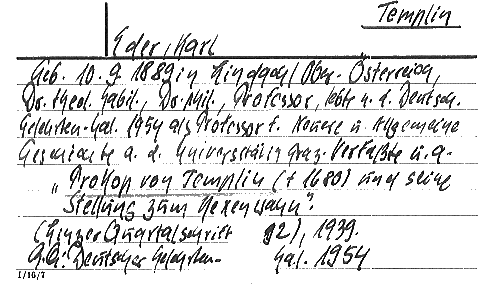 Templin
Eder, Karl
Geb. 10. 9. 1889 in Lindach/Ober-Österreich,
Dr. theol. habil., Dr. phil., Professor, lebte n. d. Deutsch.
Gelehrten-Kal. 1954 als Professor f. Neuere u. Allgemeine
Geschichte a. d. Universität in Graz. Verfaßte u. a.
„Prokop von Templin († 1680) und seine
Stellung zum Hexenwahn".
(Linzer Quartalschrift 92), 1939.
Deutscher Gelehrten- Kal. 1954
1/16/7